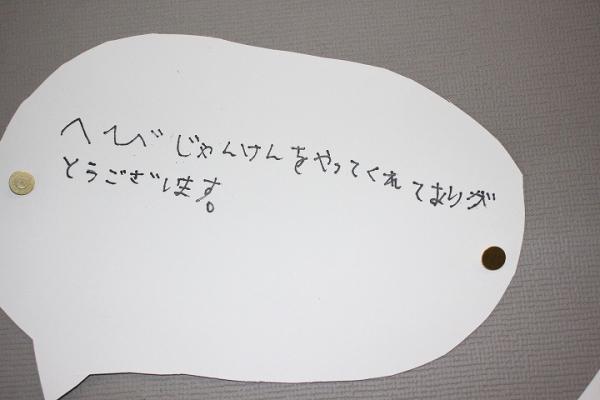 へびじゃんけんをやってくれてありが
とうございます。